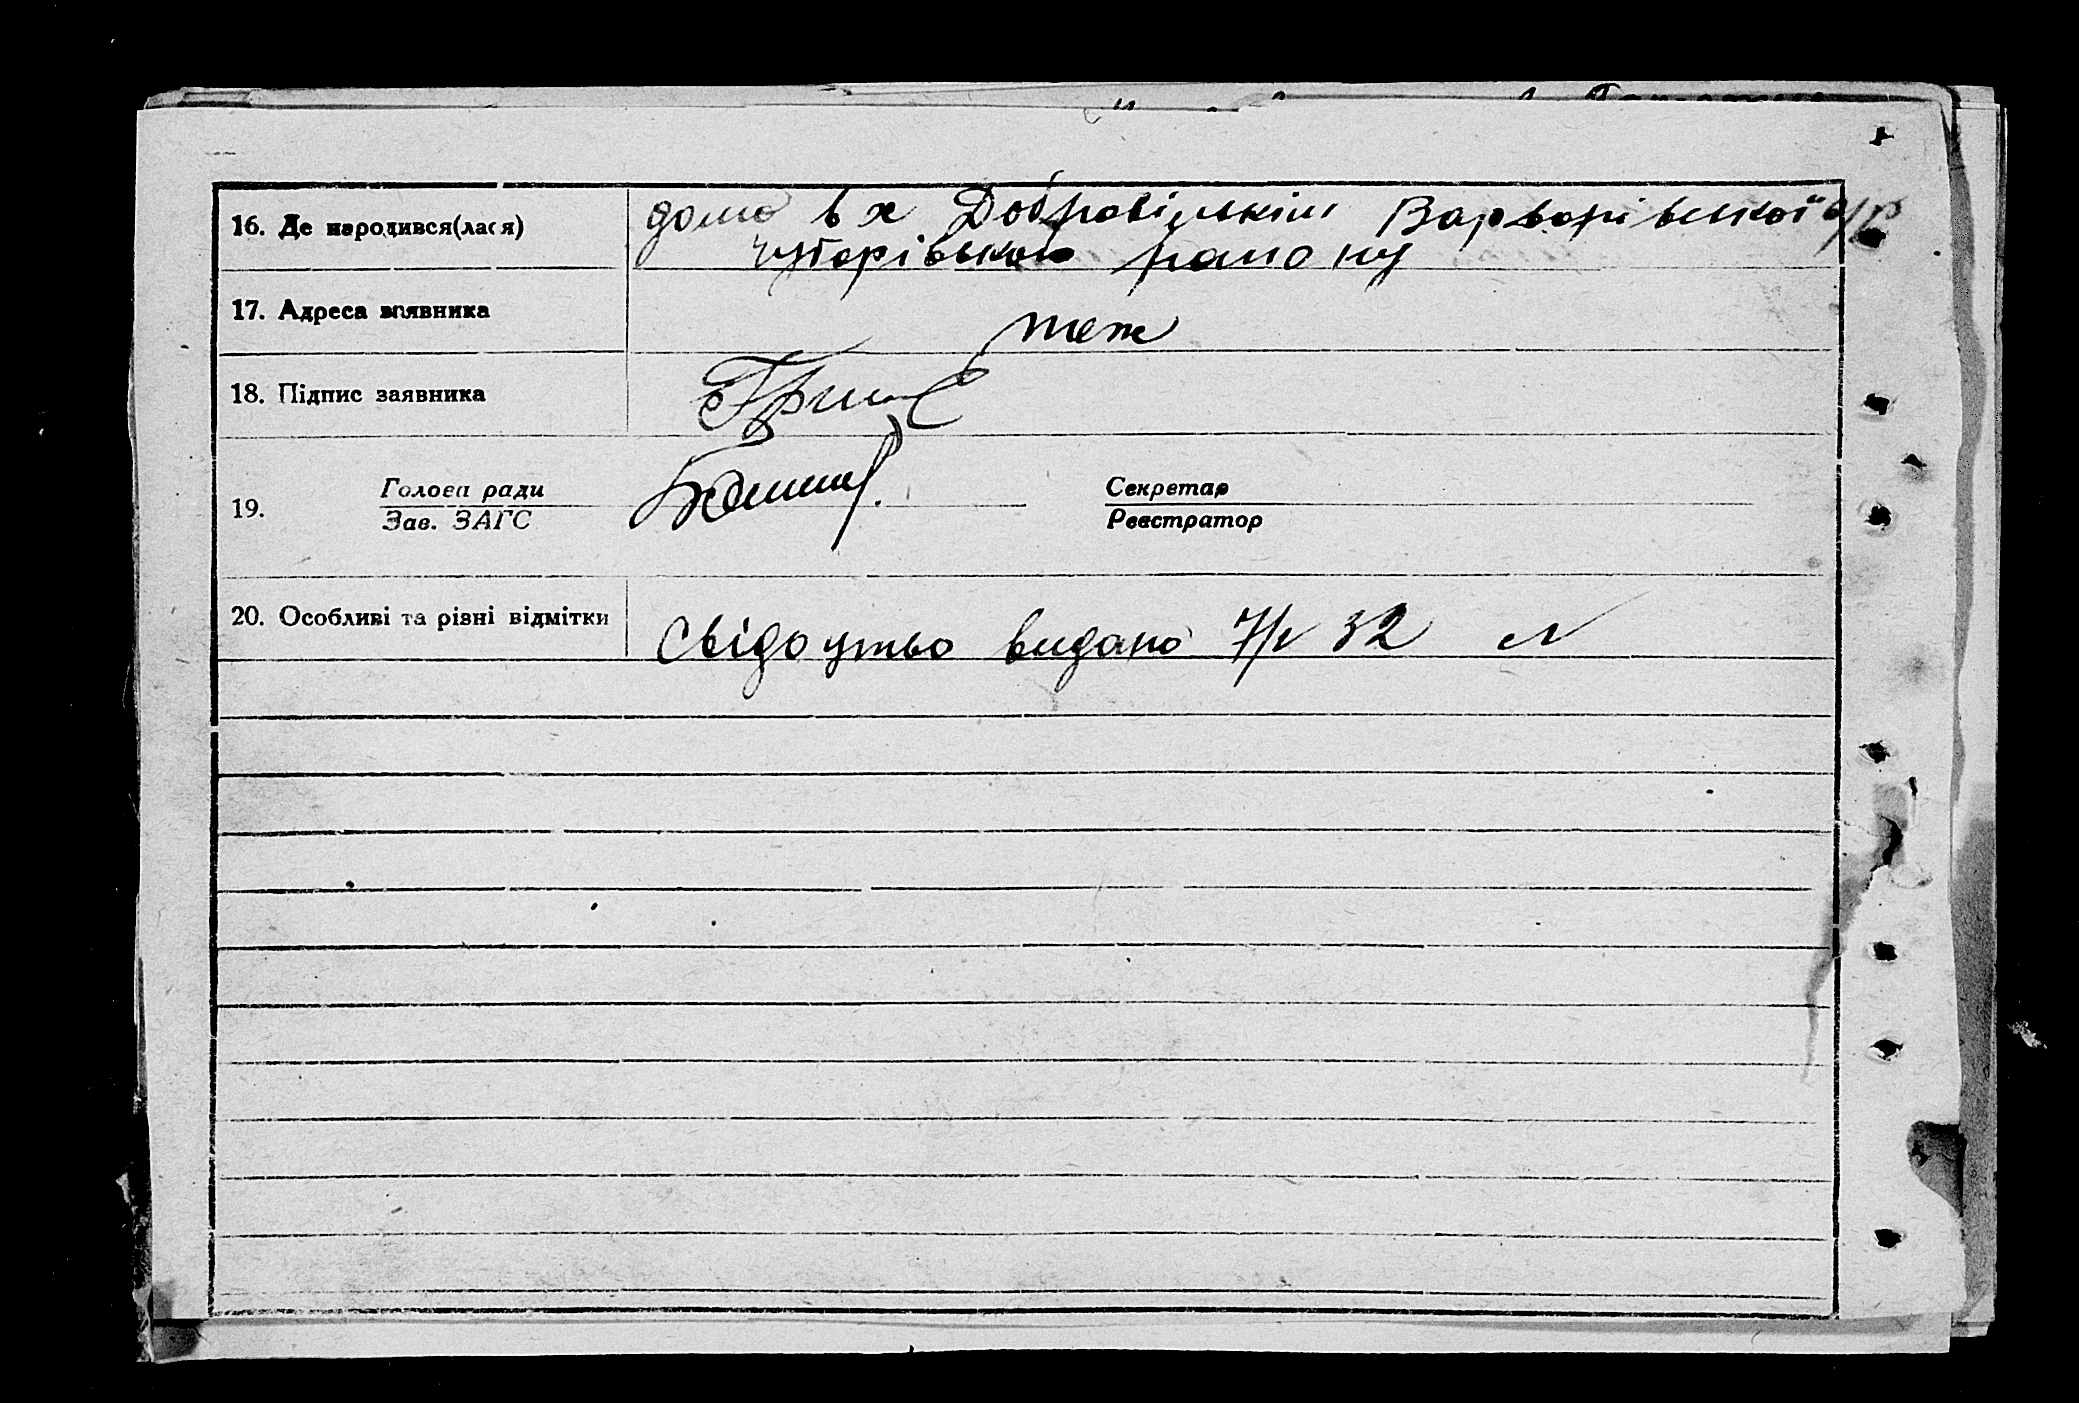 16. Де народився(лася) дома в х Добровільнім Варварівської с/р
Чуторівського району
17. Адреса заявника теж
18. Підпис заявника
19. Голова ради Секретар
Зав. ЗАГС Реєстратор
20. Особливі та різні відмітки Свідоцтво видано 7/V 32